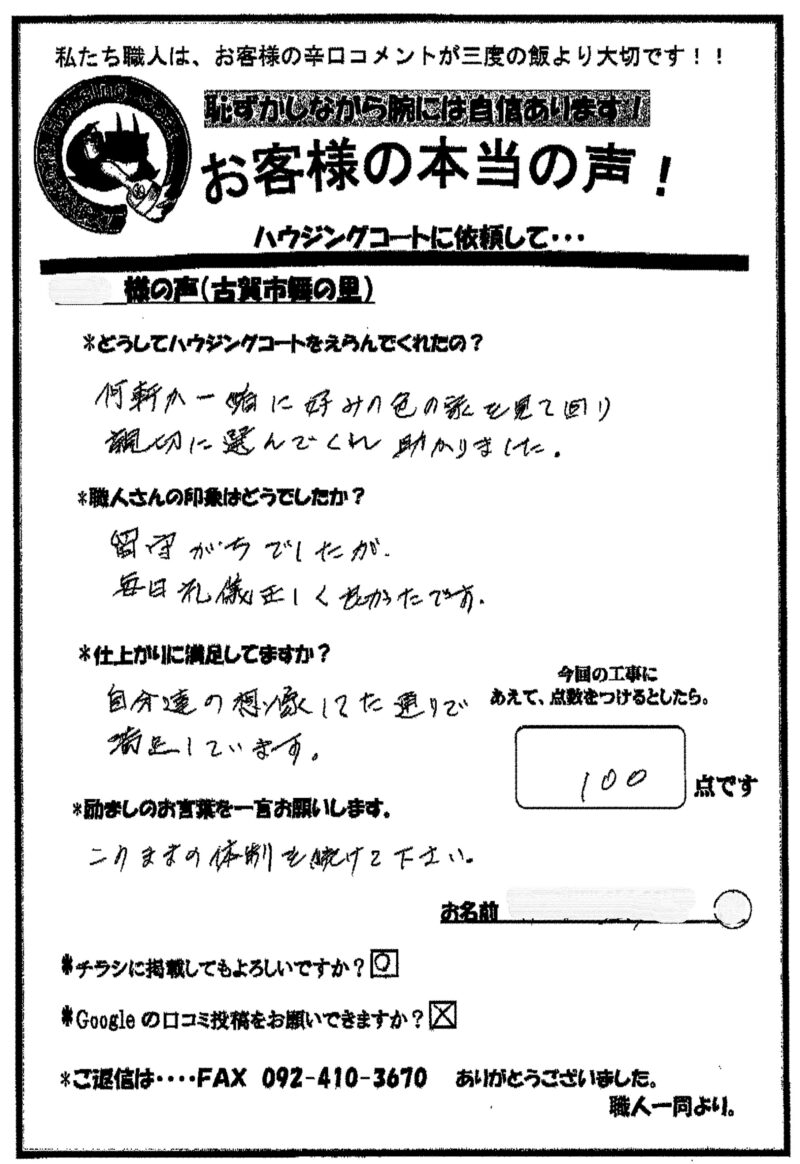 私たち職人は、お客様の辛口コメントが三度の飯より大切です！！
恥ずかしながら腕には自信あります！
お客様の本当の声！
ハウジングコートに依頼して・・・
様の声（古賀市舞の里）
*どうしてハウジングコートをえらんでくれたの？
何軒か一緒に好みの色の家を見て回り
親切に選んでくれ助かりました。
*職人さんの印象はどうでしたか？
留守がちでしたが、
毎日礼儀正しく良かったです。
*仕上がりに満足してますか？
自分達の想像してた通りで
満足しています。
今回の工事に
あえて、点数をつけるとしたら。
100 点です
*励ましのお言葉を一言お願いします。
このままの体制を続けて下さい。
お名前
*チラシに掲載してもよろしいですか？ ○
*Googleの口コミ投稿をお願いできますか？ ×
*ご返信は・・・・FAX 092-410-3670 ありがとうございました。
職人一同より。